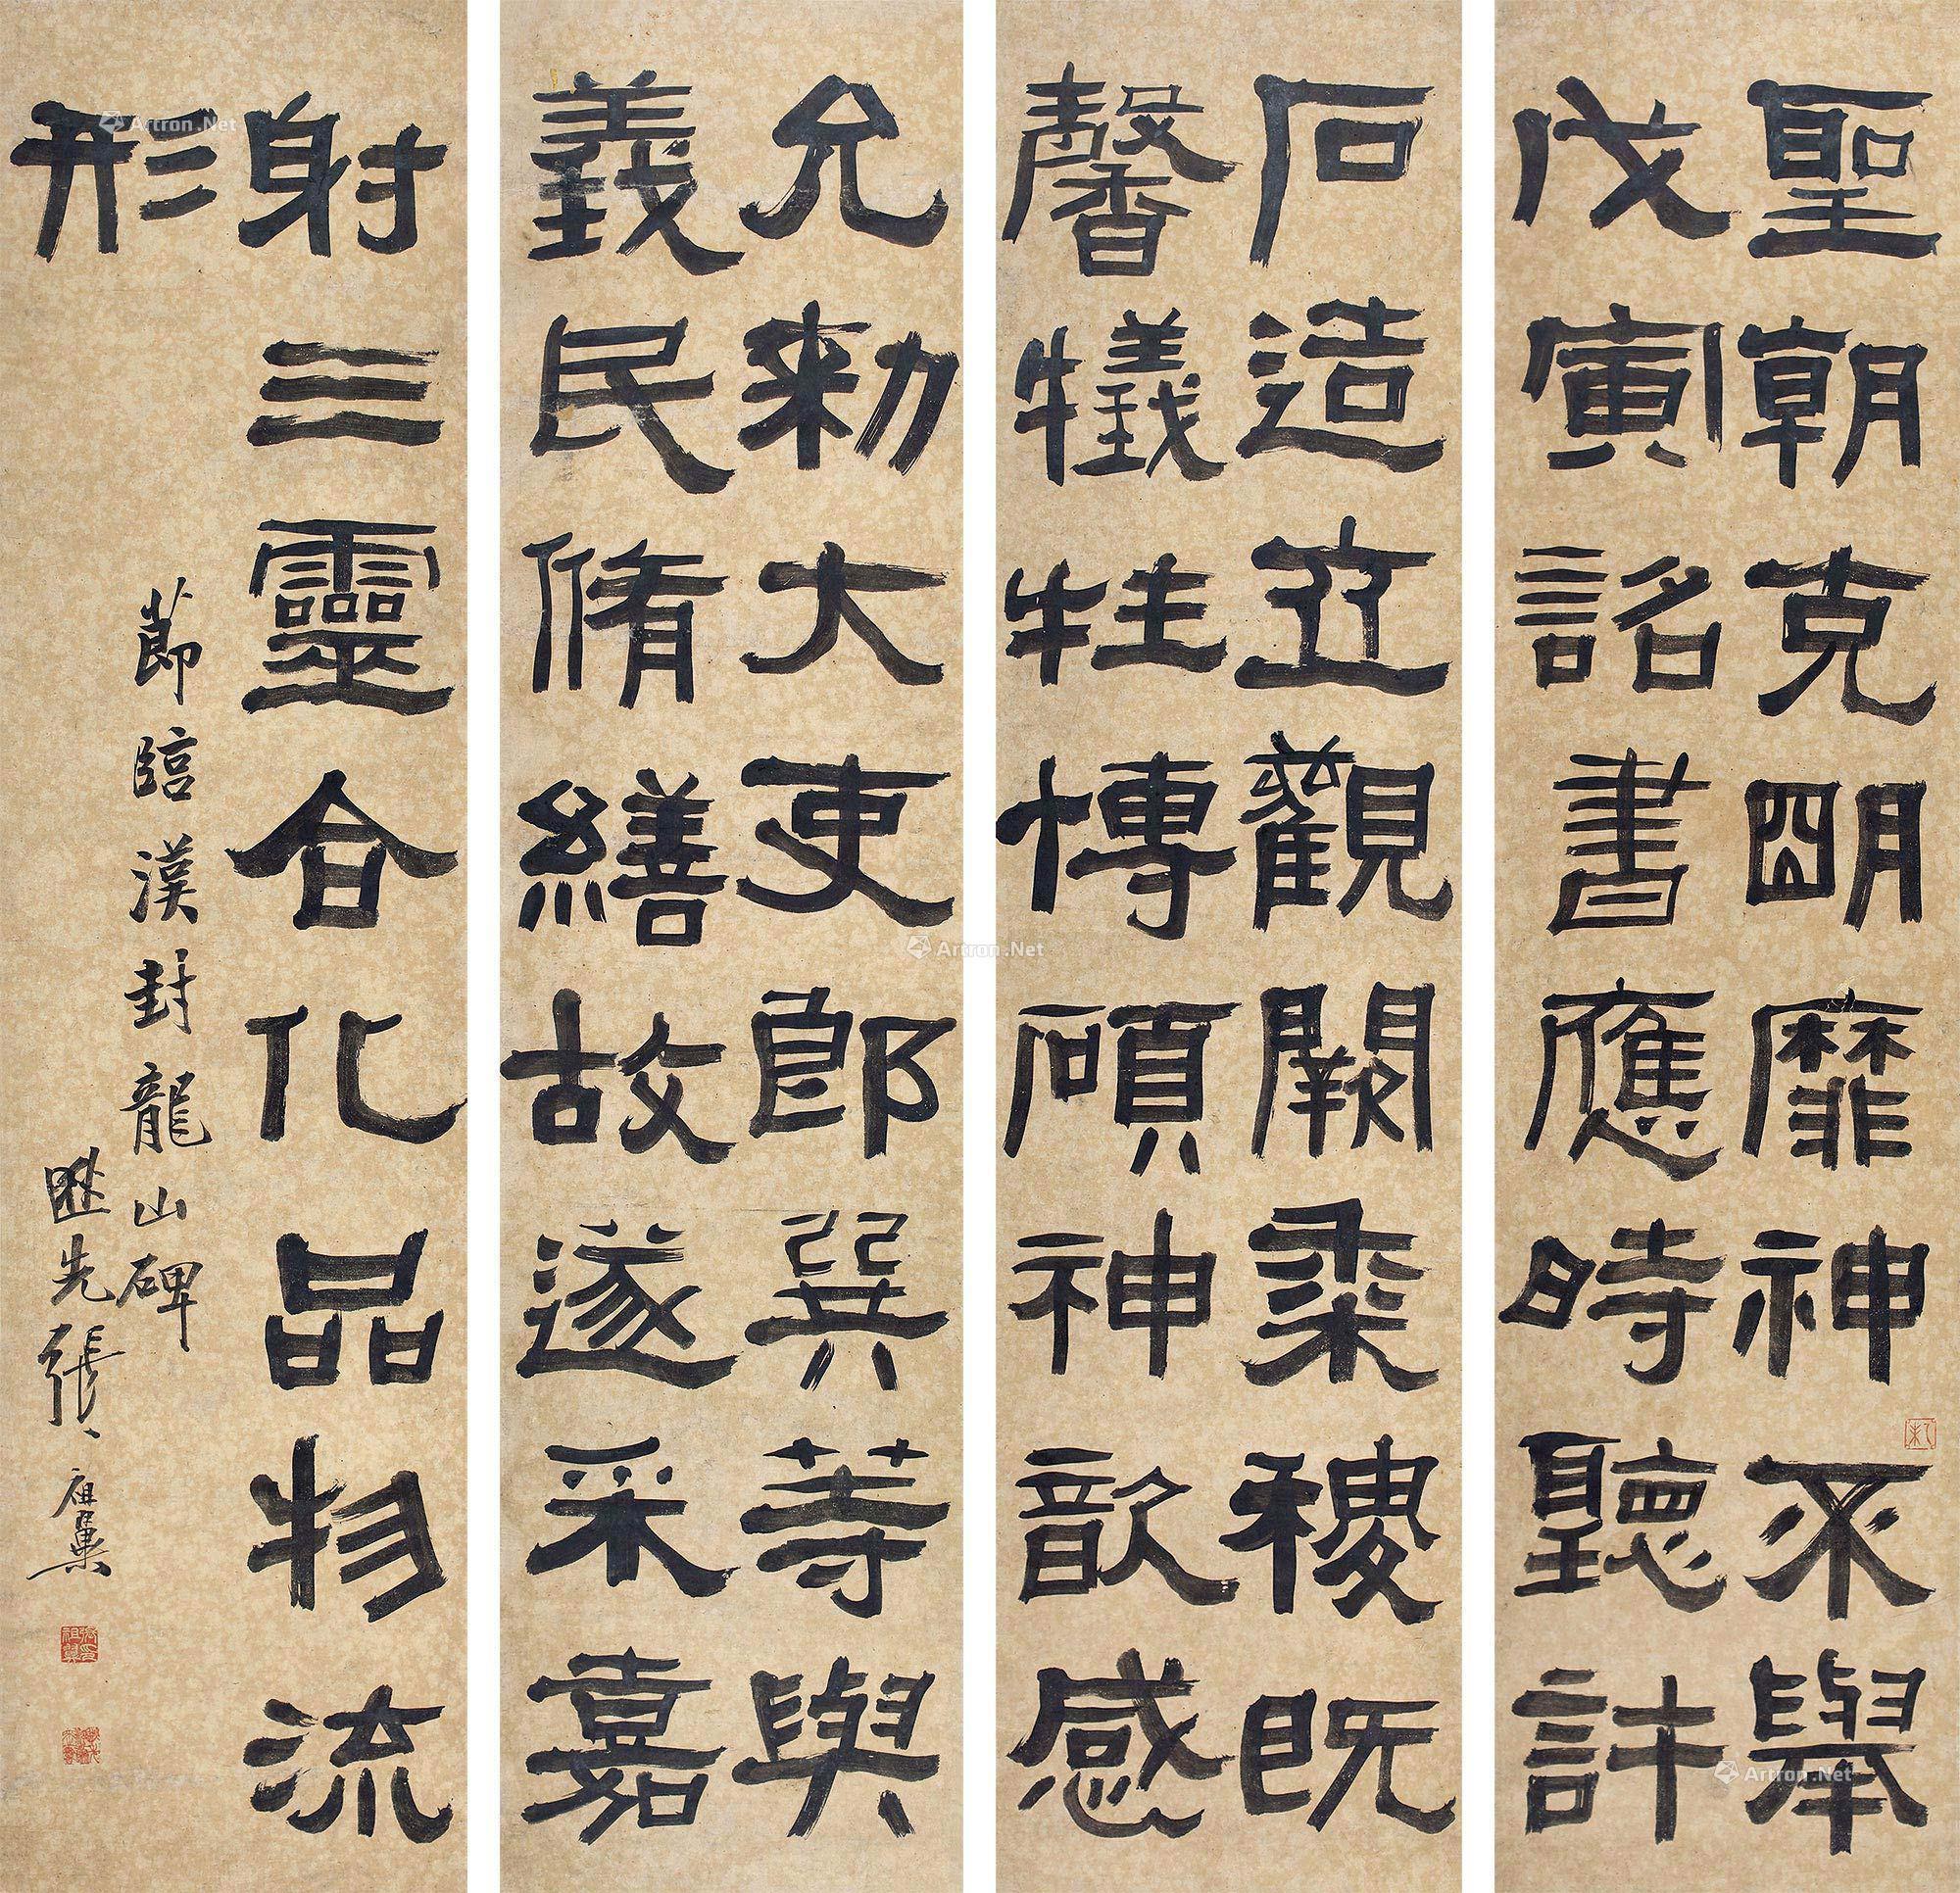 聖朝克明靡神不舉
戊寅詔書應時聽許
石造立觀闕黍稷既
馨犧牲博碩神歆感
允勑大吏郎巽等與
義民脩繕故遂采嘉
射三靈合化品物流
形
節臨漢封龍山碑
先張祖翼
Artron.Net
Artron.Net
Artron.Net